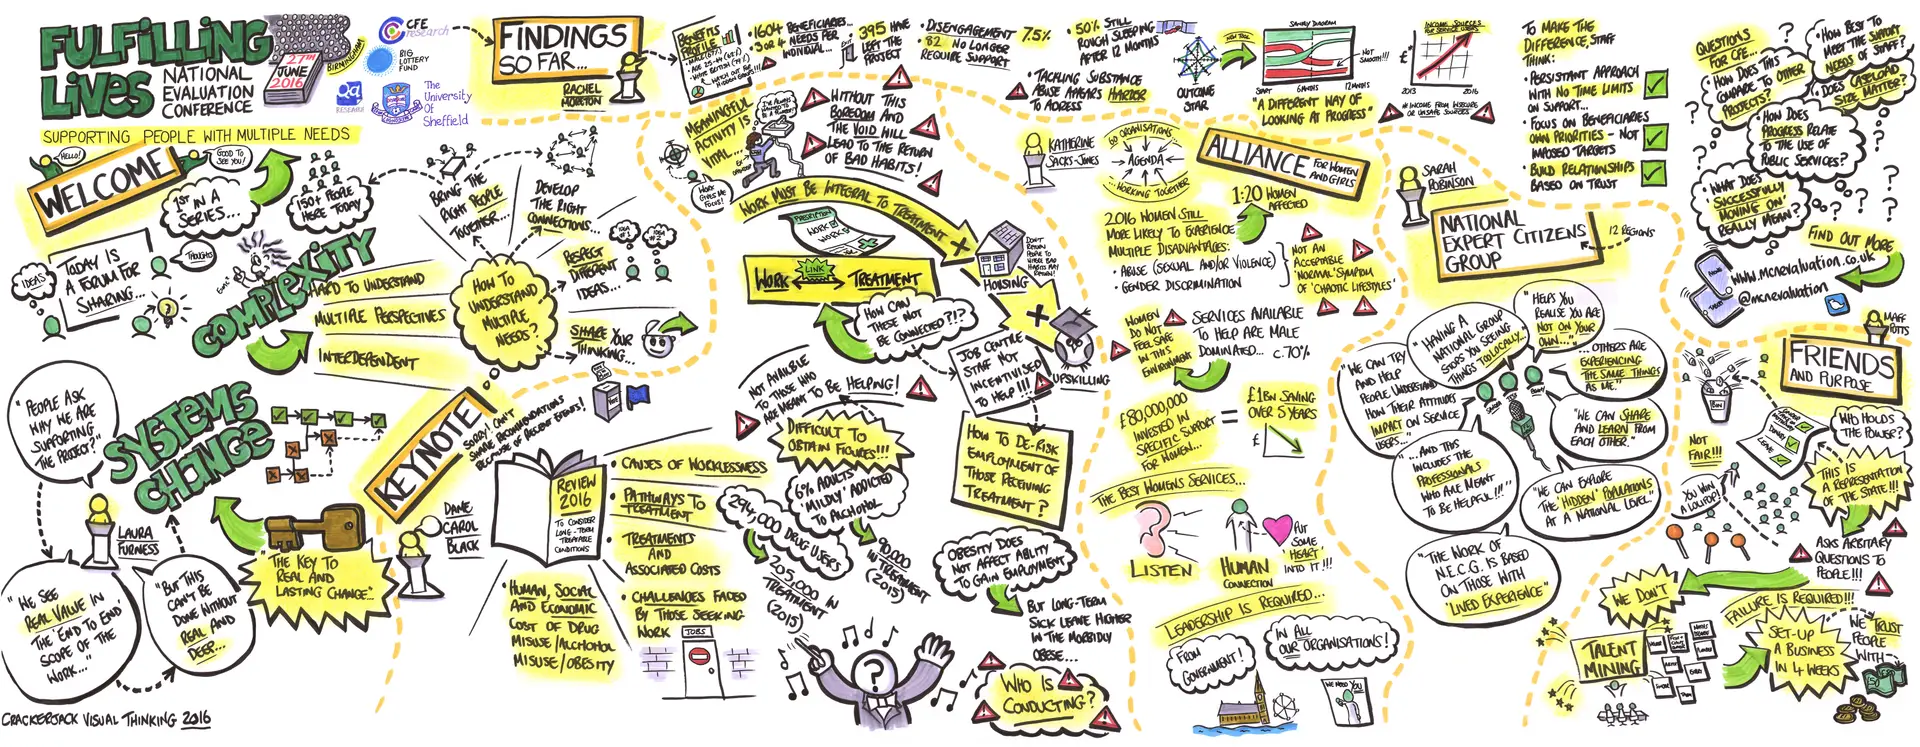 FULFILLING
LIVES
NATIONAL
EVALUATION
CONFERENCE
27TH
JUNE
2016
BIRMINGHAM
CFE
research
BIG
LOTTERY
FUND
Qa
RESEARCH
The
University
Of
Sheffield
SUPPORTING PEOPLE WITH MULTIPLE NEEDS
HELLO!
GOOD TO
SEE YOU!
WELCOME
1ST IN A
SERIES...
150+ PEOPLE
HERE TODAY
IDEAS
TODAY IS
A FORUM FOR
SHARING...
THOUGHTS
COMPLEXITY
HARD TO UNDERSTAND
MULTIPLE PERSPECTIVES
INTERDEPENDENT
HOW TO
UNDERSTAND
MULTIPLE
NEEDS?
BRING THE
RIGHT PEOPLE
TOGETHER...
DEVELOP
THE RIGHT
CONNECTIONS...
RESPECT
DIFFERENT
IDEAS...
SHARE YOUR
THINKING...
"PEOPLE ASK
WHY WE ARE
SUPPORTING
THE PROJECT?"
SYSTEMS
CHANGE
LAURA
FURNESS
"WE SEE
REAL VALUE IN
THE END TO END
SCOPE OF THE
WORK..."
"BUT THIS
CAN'T BE
DONE WITHOUT
REAL AND
DEEP...
"THE KEY TO
REAL AND
LASTING CHANGE..."
CRACKERJACK VISUAL THINKING 2016
KEYNOTE
SORRY! CAN'T
SHARE RECOMMENDATIONS
BECAUSE OF RECENT EVENTS!
VOTE
DAME
CAROL
BLACK
REVIEW
2016
TO CONSIDER
LONG-TERM
TREATABLE
CONDITIONS
• CAUSES OF WORKLESSNESS
• PATHWAYS TO
TREATMENT
• TREATMENTS
AND
ASSOCIATED COSTS
• CHALLENGES FACED
BY THOSE SEEKING
WORK
JOBS
• HUMAN, SOCIAL
AND ECONOMIC
COST OF DRUG
MISUSE/ALCOHOL
MISUSE/OBESITY
NOT AVAILBLE
TO THOSE WHO
ARE MEANT TO BE HELPING!
DIFFICULT TO
OBTAIN FIGURES!!!
294,000 DRUG USERS
205,000 IN
TREATMENT
(2015)
6% ADULTS
'MILDLY' ADDICTED
TO ALCHOHOL
90,000
IN TREATMENT
(2015)
OBESITY DOES
NOT AFFECT ABILITY
TO GAIN EMPLOYMENT
BUT LONG-TERM
SICK LEAVE HIGHER
IN THE MORBIDLY
OBESE...
?
WHO IS
CONDUCTING?
FINDINGS
SO FAR...
RACHEL
MORETON
BENEFITS
PROFILE
• 1604 BENEFICIARIES...
3 OR 4 NEEDS PER
INDIVIDUAL...
395 HAVE
LEFT THE
PROJECT
• DISENGAGEMENT
• 82 NO LONGER
REQUIRE SUPPORT
7.5%
• 50% STILL
ROUGH SLEEPING
AFTER 12 MONTHS
• TACKLING SUBSTANCE
ABUSE APPEARS HARDER
TO ADRESS
OUTCOME
STAR
NEW TOOL
SANKEY DIAGRAM
START
6 MONTHS
12 MONTHS
NOT
SMOOTH!!!
"A DIFFERENT WAY OF
LOOKING AT PROGRESS"
INCOME SOURCES
FOR SERVICE USERS
£
2013
2016
* INCOME FROM INSECURE
OR UNSAFE SOURCES
TO MAKE THE
DIFFERENCE, STAFF
THINK:
• PERSISTANT APPROACH
WITH NO TIME LIMITS
ON SUPPORT...
• FOCUS ON BENEFICIARIES
OWN PRIORITIES - NOT
IMPOSED TARGETS
• BUILD RELATIONSHIPS
BASED ON TRUST
QUESTIONS
FOR CFE...
• HOW DOES THIS
COMPARE TO OTHER
PROJECTS?
• HOW BEST TO
MEET THE SUPPORT
NEEDS OF STAFF?
• DOES CASELOAD
SIZE MATTER?
• HOW DOES
PROGRESS RELATE
TO THE USE OF
PUBLIC SERVICES?
• WHAT DOES
'SUCCESSFULLY
MOVING ON'
REALLY MEAN?
FIND OUT MORE
www.mcnevaluation.co.uk
@mcnevaluation
MEANINGFUL
ACTIVITY IS
VITAL...
WORK
GIVES ME
FOCUS!
WITHOUT THIS
BOREDOM AND
THE VOID WILL
LEAD TO THE RETURN
OF BAD HABITS!
WORK MUST BE INTEGRAL TO TREATMENT
PRESCRIPTION
WORK
WORK
WORK
LINK
TREATMENT
HOW CAN
THESE NOT
BE CONNECTED?!?
+
HOUSING
+
UPSKILLING
JOB CENTRE
STAFF NOT
INCENTIVISED
TO HELP!!!
HOW TO DE-RISK
EMPLOYMENT OF
THOSE RECEIVING
TREATMENT?
KATHERINE
SACKS-JONES
60 ORGANISATIONS
AGENDA
...WORKING TOGETHER
ALLIANCE FOR WOMEN
AND GIRLS
1:20 WOMEN
AFFECTED
2016 WOMEN STILL
MORE LIKELY TO EXPERIENCE
MULTIPLE DISADVANTAGES:
• ABUSE (SEXUAL AND/OR VIOLENCE)
• GENDER DISCRIMINATION
NOT AN
ACCEPTABLE
'NORMAL' SYMPTOM
OF 'CHAOTIC LIFESTYLES'
WOMEN
DO NOT
FEEL SAFE
IN THIS
ENVIRONMENT
SERVICES AVAILABLE
TO HELP ARE MALE
DOMINATED... c.70%
£80,000,000
INVESTED IN
SPECIFIC SUPPORT
FOR WOMEN...
=
£1BN SAVING
OVER 5 YEARS
£
THE BEST WOMENS SERVICES...
LISTEN
HUMAN
CONNECTION
PUT
SOME
'HEART'
INTO IT!!!
LEADERSHIP IS REQUIRED...
FROM
GOVERNMENT!
IN ALL
OUR ORGANISATIONS!
WE NEED YOU
SARAH
ROBINSON
NATIONAL
EXPERT CITIZENS
GROUP
12 REGIONS
"WE CAN TRY
AND HELP
PEOPLE UNDERSTAND
HOW THEIR ATTITUDES
IMPACT ON SERVICE
USERS..."
"HAVING A
NATIONAL GROUP
STOPS YOU SEEING
THINGS TOO LOCALLY..."
"HELPS YOU
REALISE YOU ARE
NOT ON YOUR
OWN..."
... OTHERS ARE
EXPERIENCING
THE SAME THINGS
AS ME."
"...AND THIS
INCLUDES THE
PROFESSIONALS
WHO ARE MEANT
TO BE HELPFUL!!!"
"WE CAN SHARE
AND LEARN FROM
EACH OTHER."
"WE CAN EXPLORE
THE 'HIDDEN' POPULATIONS
AT A NATIONAL LEVEL."
"THE WORK OF
N.E.C.G. IS BASED
ON THOSE WITH
'LIVED EXPERIENCE'"
MAFF
POTTS
FRIENDS
AND PURPOSE
BIN
WHO HOLDS
THE POWER?
NOT
FAIR!!!
YOU WIN
A LOLLIPOP!
THIS IS
A REPRESENTATION
OF THE STATE!!!
ASK ARBITARY
QUESTIONS TO
PEOPLE!!!
WE DON'T
FAILURE IS REQUIRED!!!
TALENT
MINING
SET-UP
A BUSINESS
IN 4 WEEKS
WE TRUST
PEOPLE
WITH